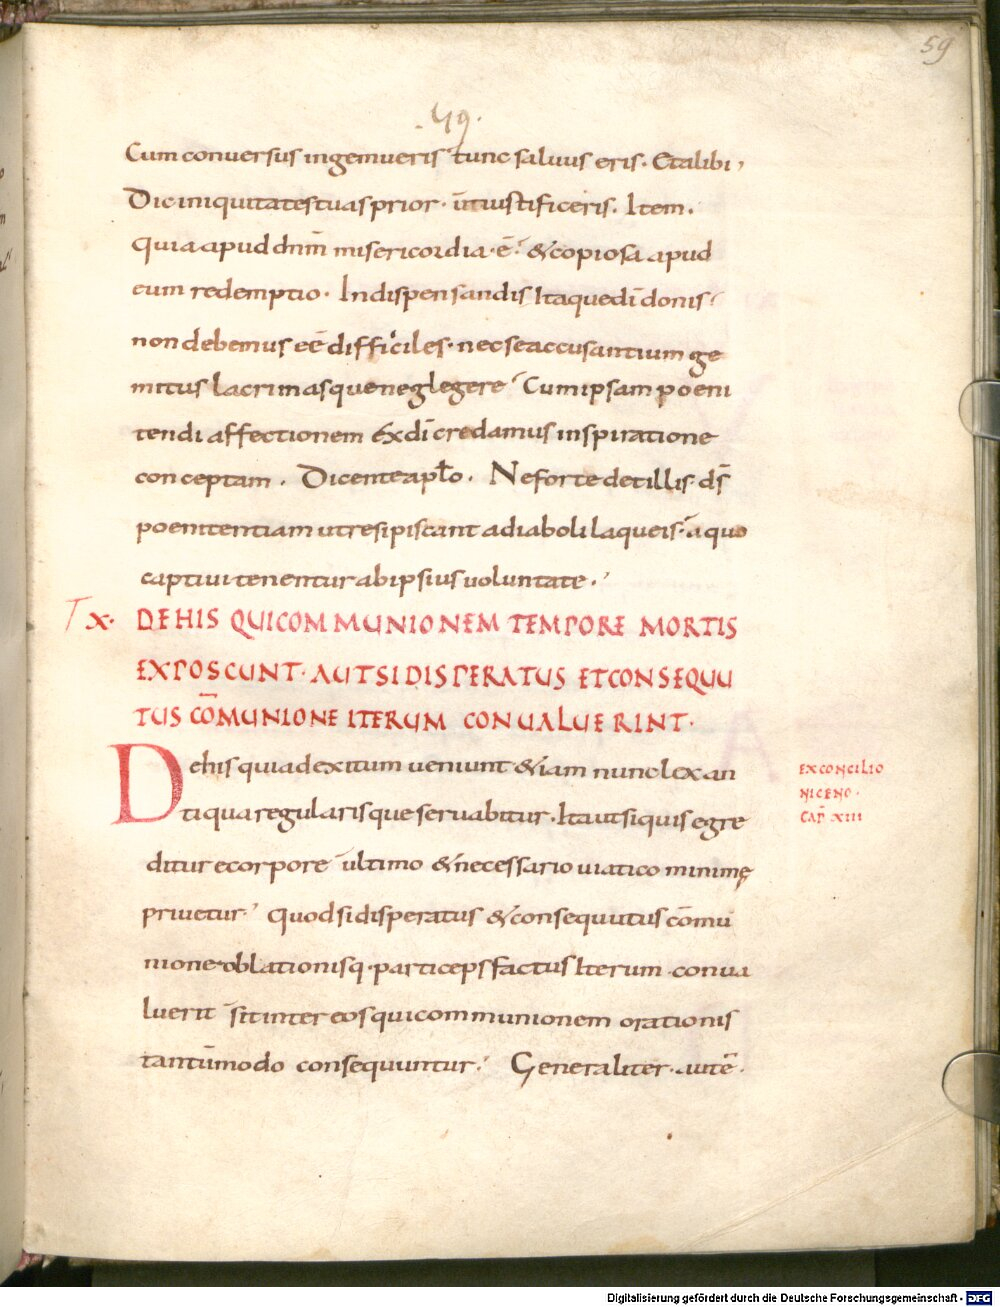 59
.49.
Cum conuersus ingemueris tunc saluus eris. Et alibi,
Dic iniquitates tuas prior. ut iustificeris. Item.
Quia apud dnm̄ misericordia ē. & copiosa apud
eum redemptio. In dispensandis Itaque dī donis
non debemus eē difficiles. nec se accusantium ge
mitus lacrimasque neglegere Cum ipsam poeni
tendi affectionem Ex dī credamus inspiratione
conceptam. Dicente apło. Ne forte det illis ds̄
poenitentiam ut resipiscant a diaboli laqueis. a quo
captiui tenentur ab ipsius uoluntate.
T x. DE HIS QUI COMMUNIONEM TEMPORE MORTIS
EXPOSCUNT. AUT SI DISPERATUS ET CONSEQUU
TUS CŌMUNIONE ITERUM CONUALUERINT.
De his qui ad exitum ueniunt & iam nunc lex an
tiqua regularisque seruabitur. Ita ut si quis egre
ditur e corpore ultimo & necessario uiatico minime
priuetur. Quod si disperatus & consequutus cōmu
nione oblationisq. particeps factus Iterum conua
luerit sit inter eos qui communionem orationis
tantūmodo consequuntur. Generaliter. autē.
EX CONCILIO
NICENO.
CAP̄ XIII
Digitalisierung gefördert durch die Deutsche Forschungsgemeinschaft - DFG